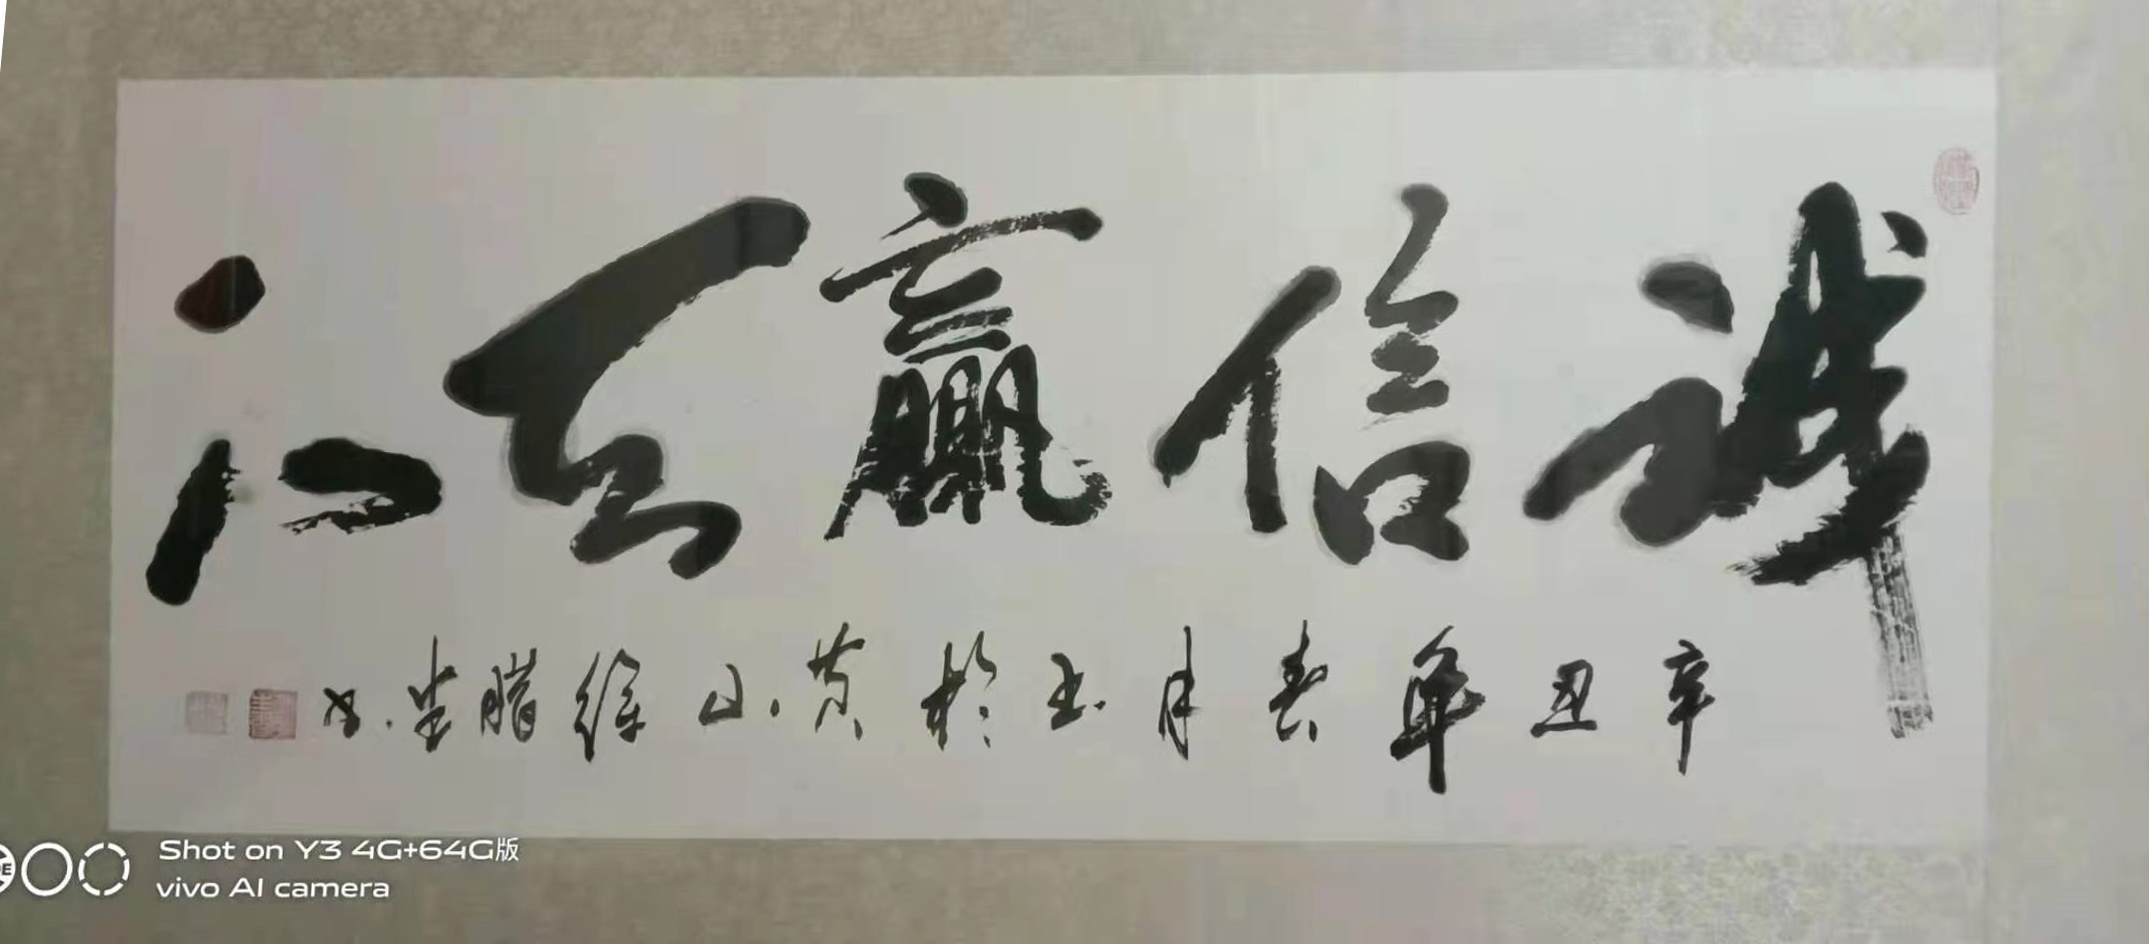 诚信赢天下
辛丑年春月於黄山徐腊
Shot on Y3 4G+64G版
vivo AI camera